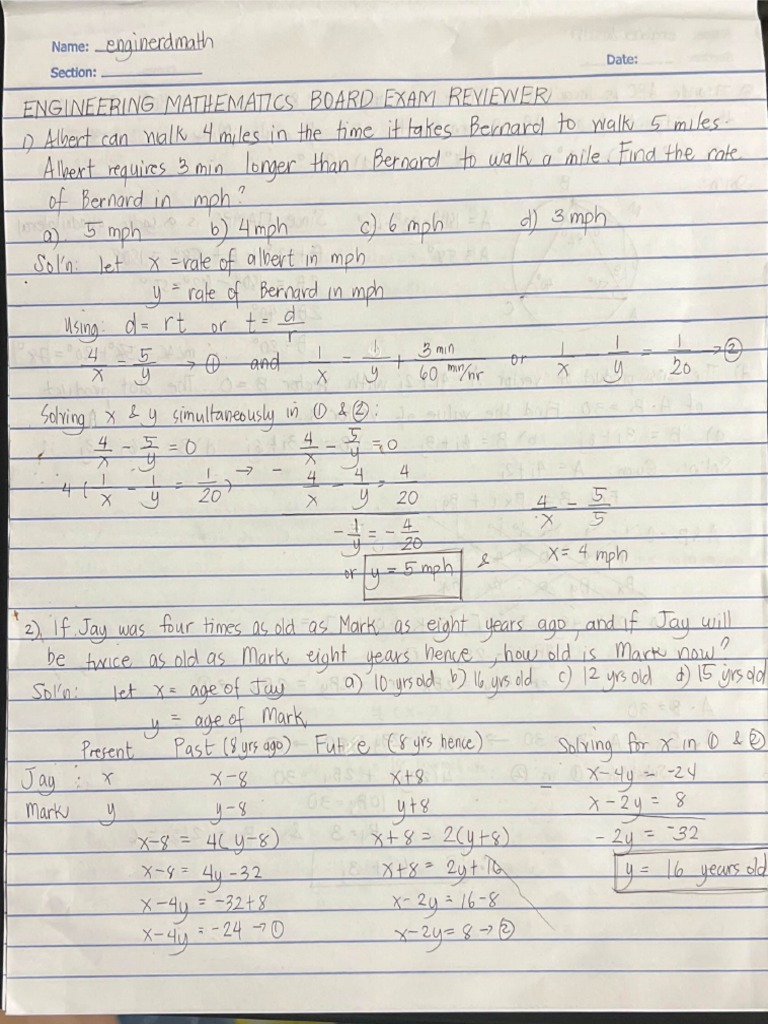 Name: enginerdmath
Section:
Date:
ENGINEERING MATHEMATICS BOARD EXAM REVIEWER
1) Albert can walk 4 miles in the time it takes Bernard to walk 5 miles.
Albert requires 3 min longer than Bernard to walk a mile. Find the rate
of Bernard in mph?
a) 5 mph b) 4 mph c) 6 mph d) 3 mph
Sol'n: let x = rate of albert in mph
y = rate of Bernard in mph
Using: d = rt or t = d/r
4/x = 5/y → ① and 1/x = 1/y + 3 min / 60 min/hr or 1/x - 1/y = 1/20 → ②
Solving x & y simultaneously in ① & ②:
4/x - 5/y = 0 4/x - 5/y = 0
4 (1/x - 1/y = 1/20) → - 4/x - 4/y = 4/20
-1/y = -4/20 4/x - 5/5
or y = 5 mph & x = 4 mph
2) If Jay was four times as old as Mark as eight years ago, and if Jay will
be twice as old as Mark eight years hence, how old is Mark now?
Sol'n: let x = age of Jay a) 10 yrs old b) 16 yrs old c) 12 yrs old d) 15 yrs old
y = age of Mark
Present Past (8 yrs ago) Future (8 yrs hence) Solving for x in ① & ②
Jay : x x-8 x+8 x-4y = -24
Mark y y-8 y+8 - x-2y = 8
x-8 = 4(y-8) x+8 = 2(y+8) -2y = -32
x-8 = 4y-32 x+8 = 2y+16 y = 16 years old
x-4y = -32+8 x-2y = 16-8
x-4y = -24 → ① x-2y = 8 → ②